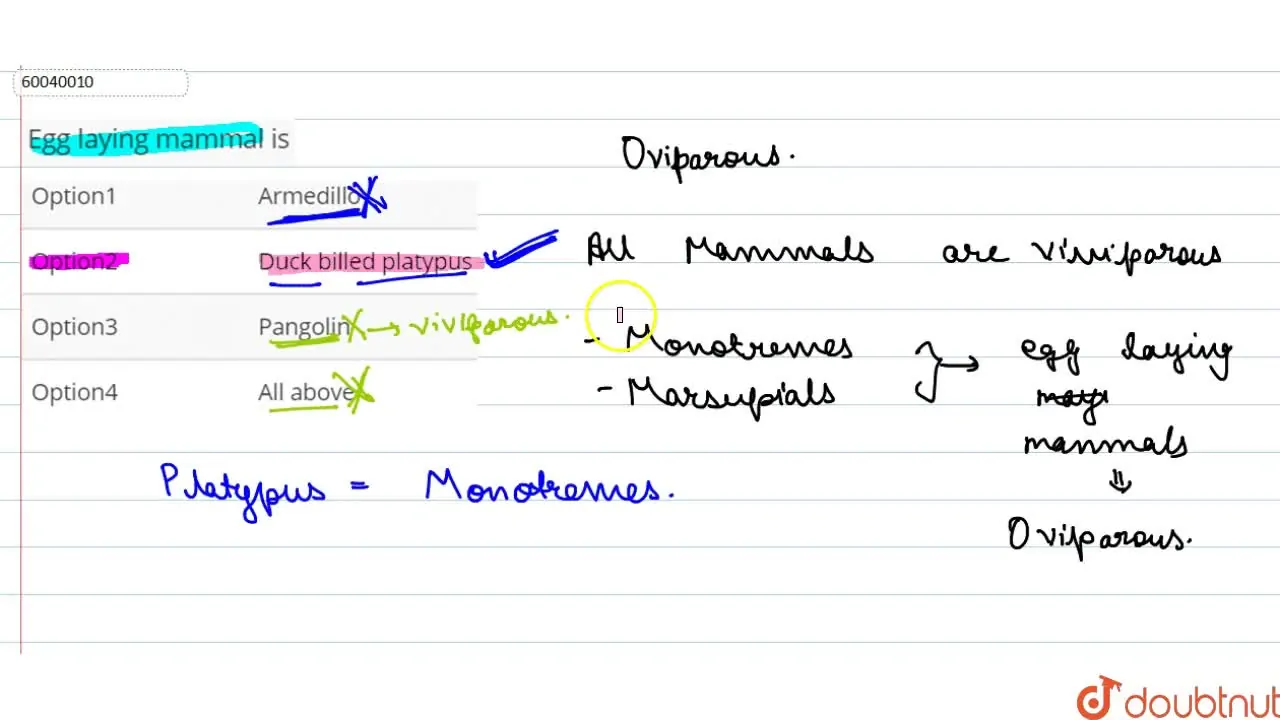 60040010
Egg laying mammal is
Oviparous.
Option1 Armedillo
Option2 Duck billed platypus
All Mammals are viviparous
Option3 Pangolin → viviparous.
- Monotremes
- Marsupials
→ egg laying
mammals
⇓
Oviparous.
Option4 All above
Platypus = Monotremes.
doubtnut